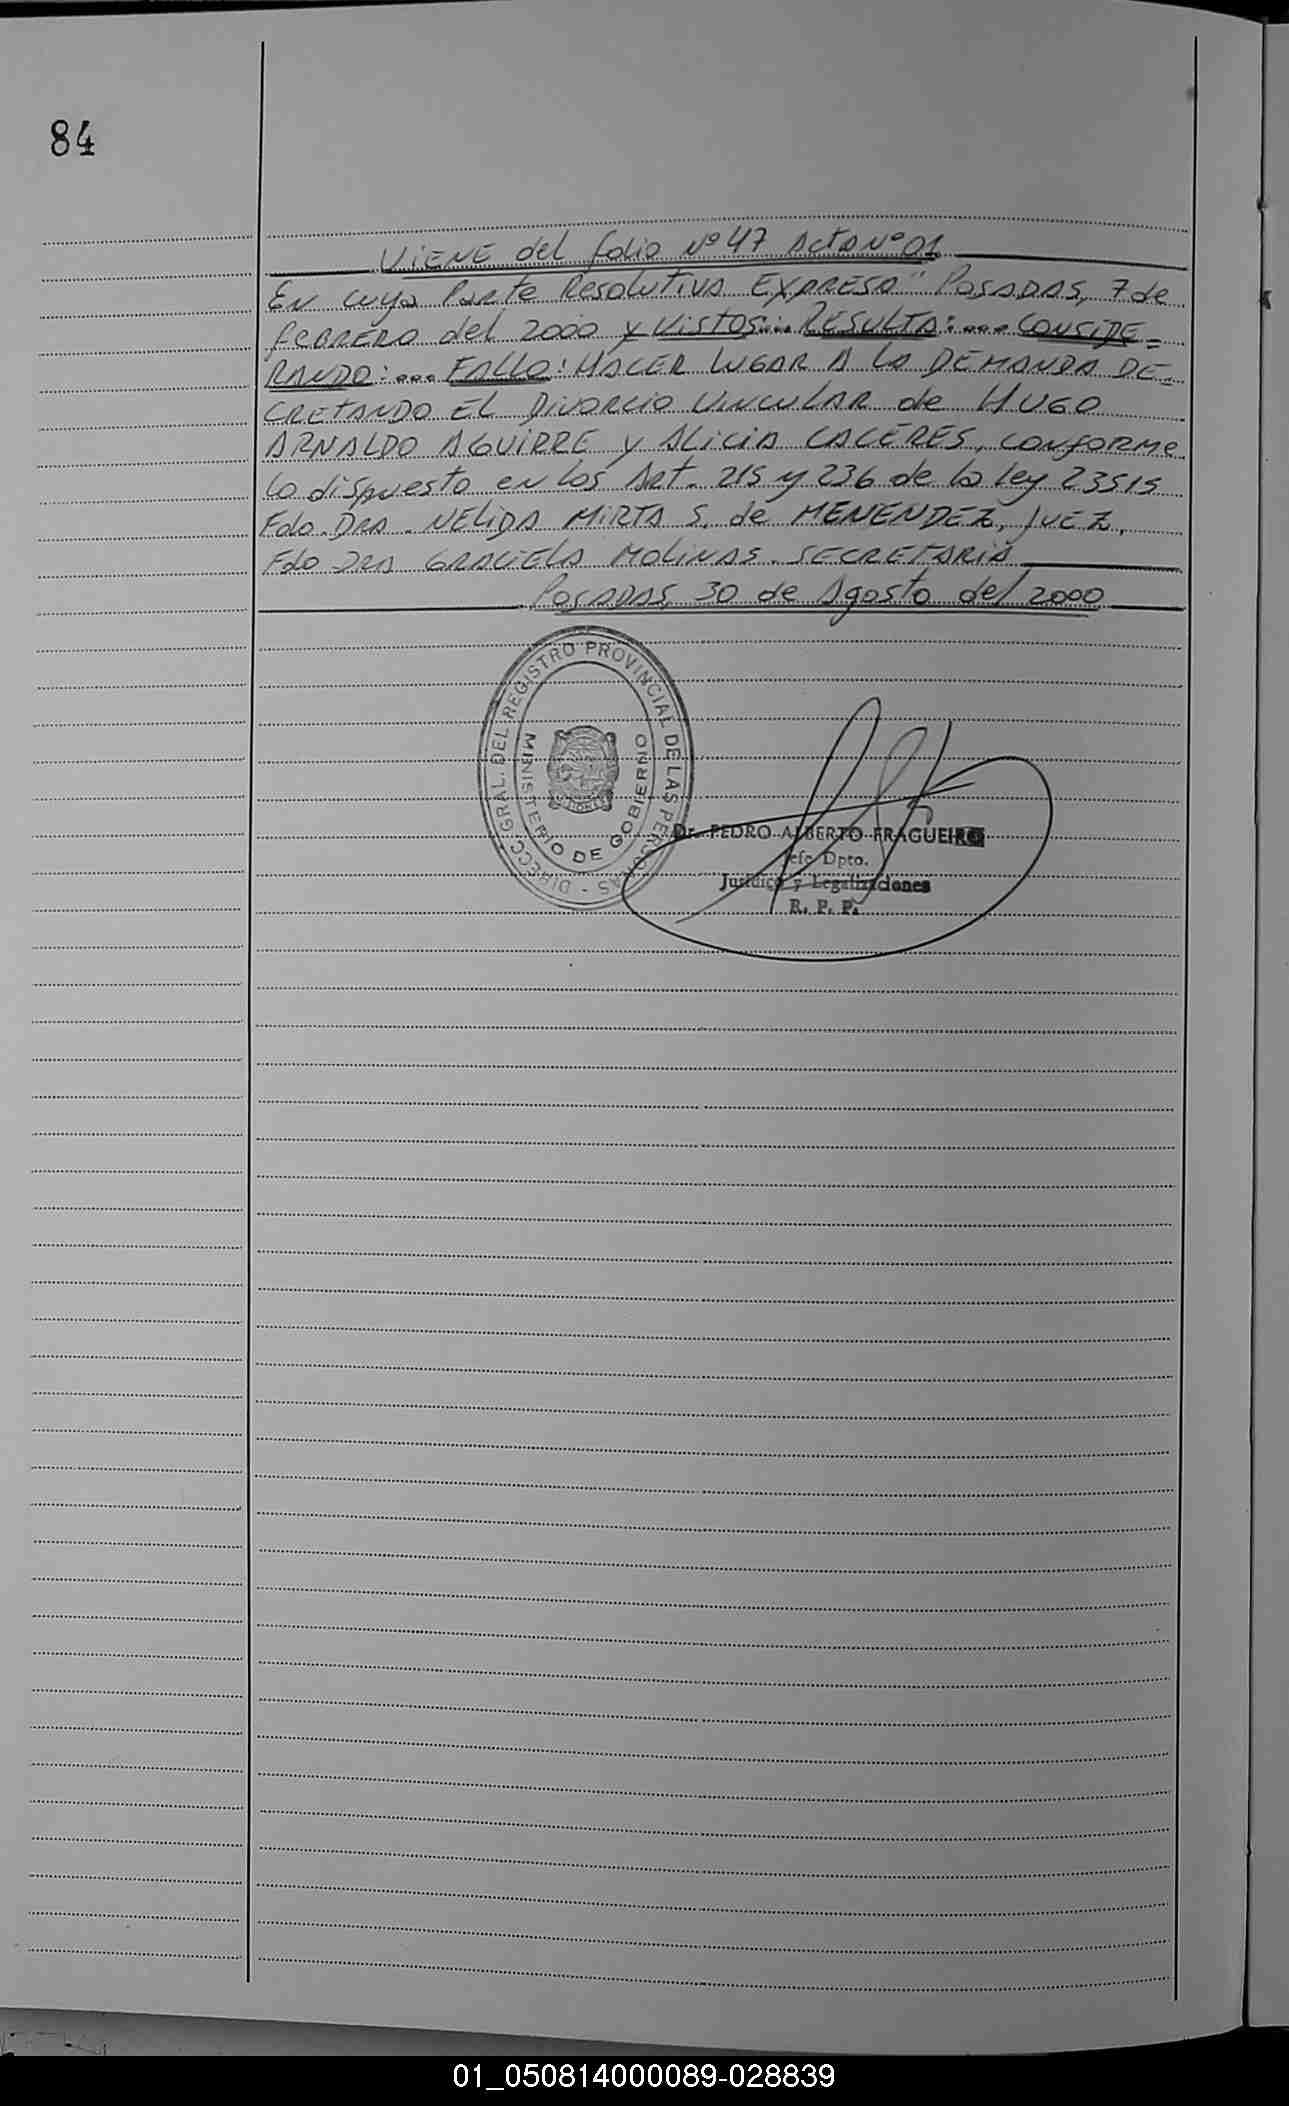 84
VIENE del folio Nº 47 Acta Nº 01
En cuya Parte Resolutiva EXPRESA" POSADAS, 7 de
febrero del 2000 y VISTOS:... RESULTA:... CONSIDE=
RANDO:... FALLO: HACER LUGAR A LA DEMANDA DE=
CRETANDO EL DIVORCIO VINCULAR de HUGO
ARNALDO AGUIRRE y ALICIA CACERES, CONFORME
lo dispuesto en los Art. 215 y 236 de la ley 23515
Fdo. DRA. NELIDA MIRTA S. de MENENDEZ, JUEZ,
Fdo DRA GRACIELA MOLINAS. SECRETARIA
POSADAS, 30 de Agosto del 2000
DIRECC. GRAL. DEL REGISTRO PROVINCIAL DE LAS PERSONAS -
MINISTERIO DE GOBIERNO
Dr. PEDRO ALBERTO FRAGUEIRO
Jefe Dpto.
Jurídico y Legalizaciones
R. P. P.
01_050814000089-028839